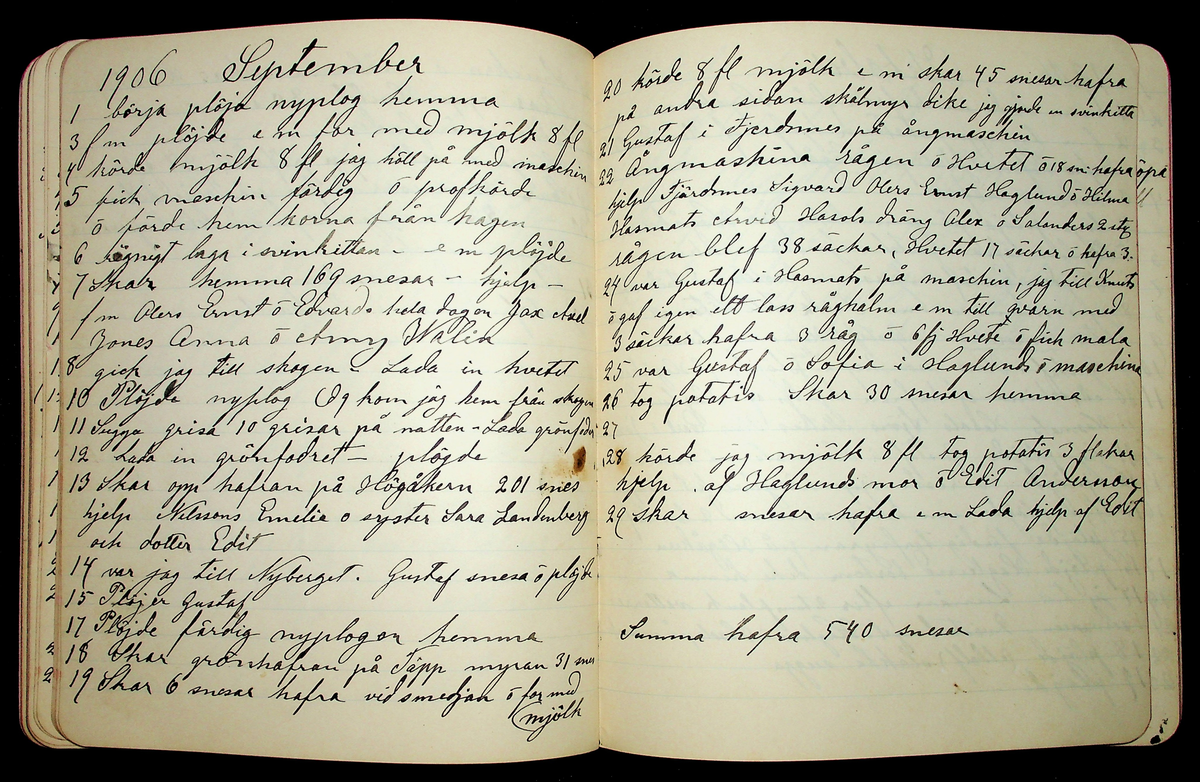 1906 September
1 börja plöja nyplog hemma
3 f m plöjde e m for med mjölk 8 fl
4 körde mjölk 8 fl jag höll på med maschin
5 fick maschin färdig ö profkörde
ö förde hem korna från hagen
6 rägnigt laga i svinkittan - e m plöjde
7 Skar hemma 169 snesar - hjelp -
f m Olers Ernst ö Edvards hela dagen Jax Axel
Jones Anna ö Amy Walin
8 gick jag till skogen - Lada in hvetet
10 Plöjde nyplog (Og kom jag hem från skogen
11 Sugga grisa 10 grisar på natten - Lada grönfodr
12 Lada in grönfodret - plöjde
13 Skar opp hafran på Högåkern 201 snes
hjelp Nilssons Emelia o syster Sara Landenberg
och dotter Edit
14 var jag till Nyberget. Gustaf snesa ö plöjde
15 Plöjer Gustaf
17 Plöjde färdig nyplogen hemma
18 Skar grönhafran på Täpp myran 31 snes
19 Skar 6 snesar hafra vid smedjan ö for med
(mjölk
20 körde 8 fl mjölk e m skar 45 snesar hafra
på andra sidan skålmyr dike jag gjorde en svinkitta
21 Gustaf i Fjerdsmes på ångmaschin
22 Ångmaskina rågen ö Hvetet ö 18 sn: hafra
hjelp Fjärdsmes Sigvard Olers Ernst Haglund ö Hilma
Hasmats Arvid Hasols dräng Alex ö Salanders 2 st
rågen blef 38 säckar, Hvetet 17 säckar ö hafra 3.
24 var Gustaf i Hasmats på maschin, jag till Knuts
ö gaf igen ett lass råghalm e m till qvarn med
3 säckar hafra 3 råg ö 6 fj Hvete ö fick mala
25 var Gustaf ö Sofia i Haglunds ö maschina
26 tog potatis Skar 30 snesar hemma
27
28 körde jag mjölk 8 fl tog potatis 3 fl skar
hjelp. af Haglunds mor ö Edit Anderson
29 Skar snesar hafra e m Lada hjelp af Edit
Summa hafra 540 snesar